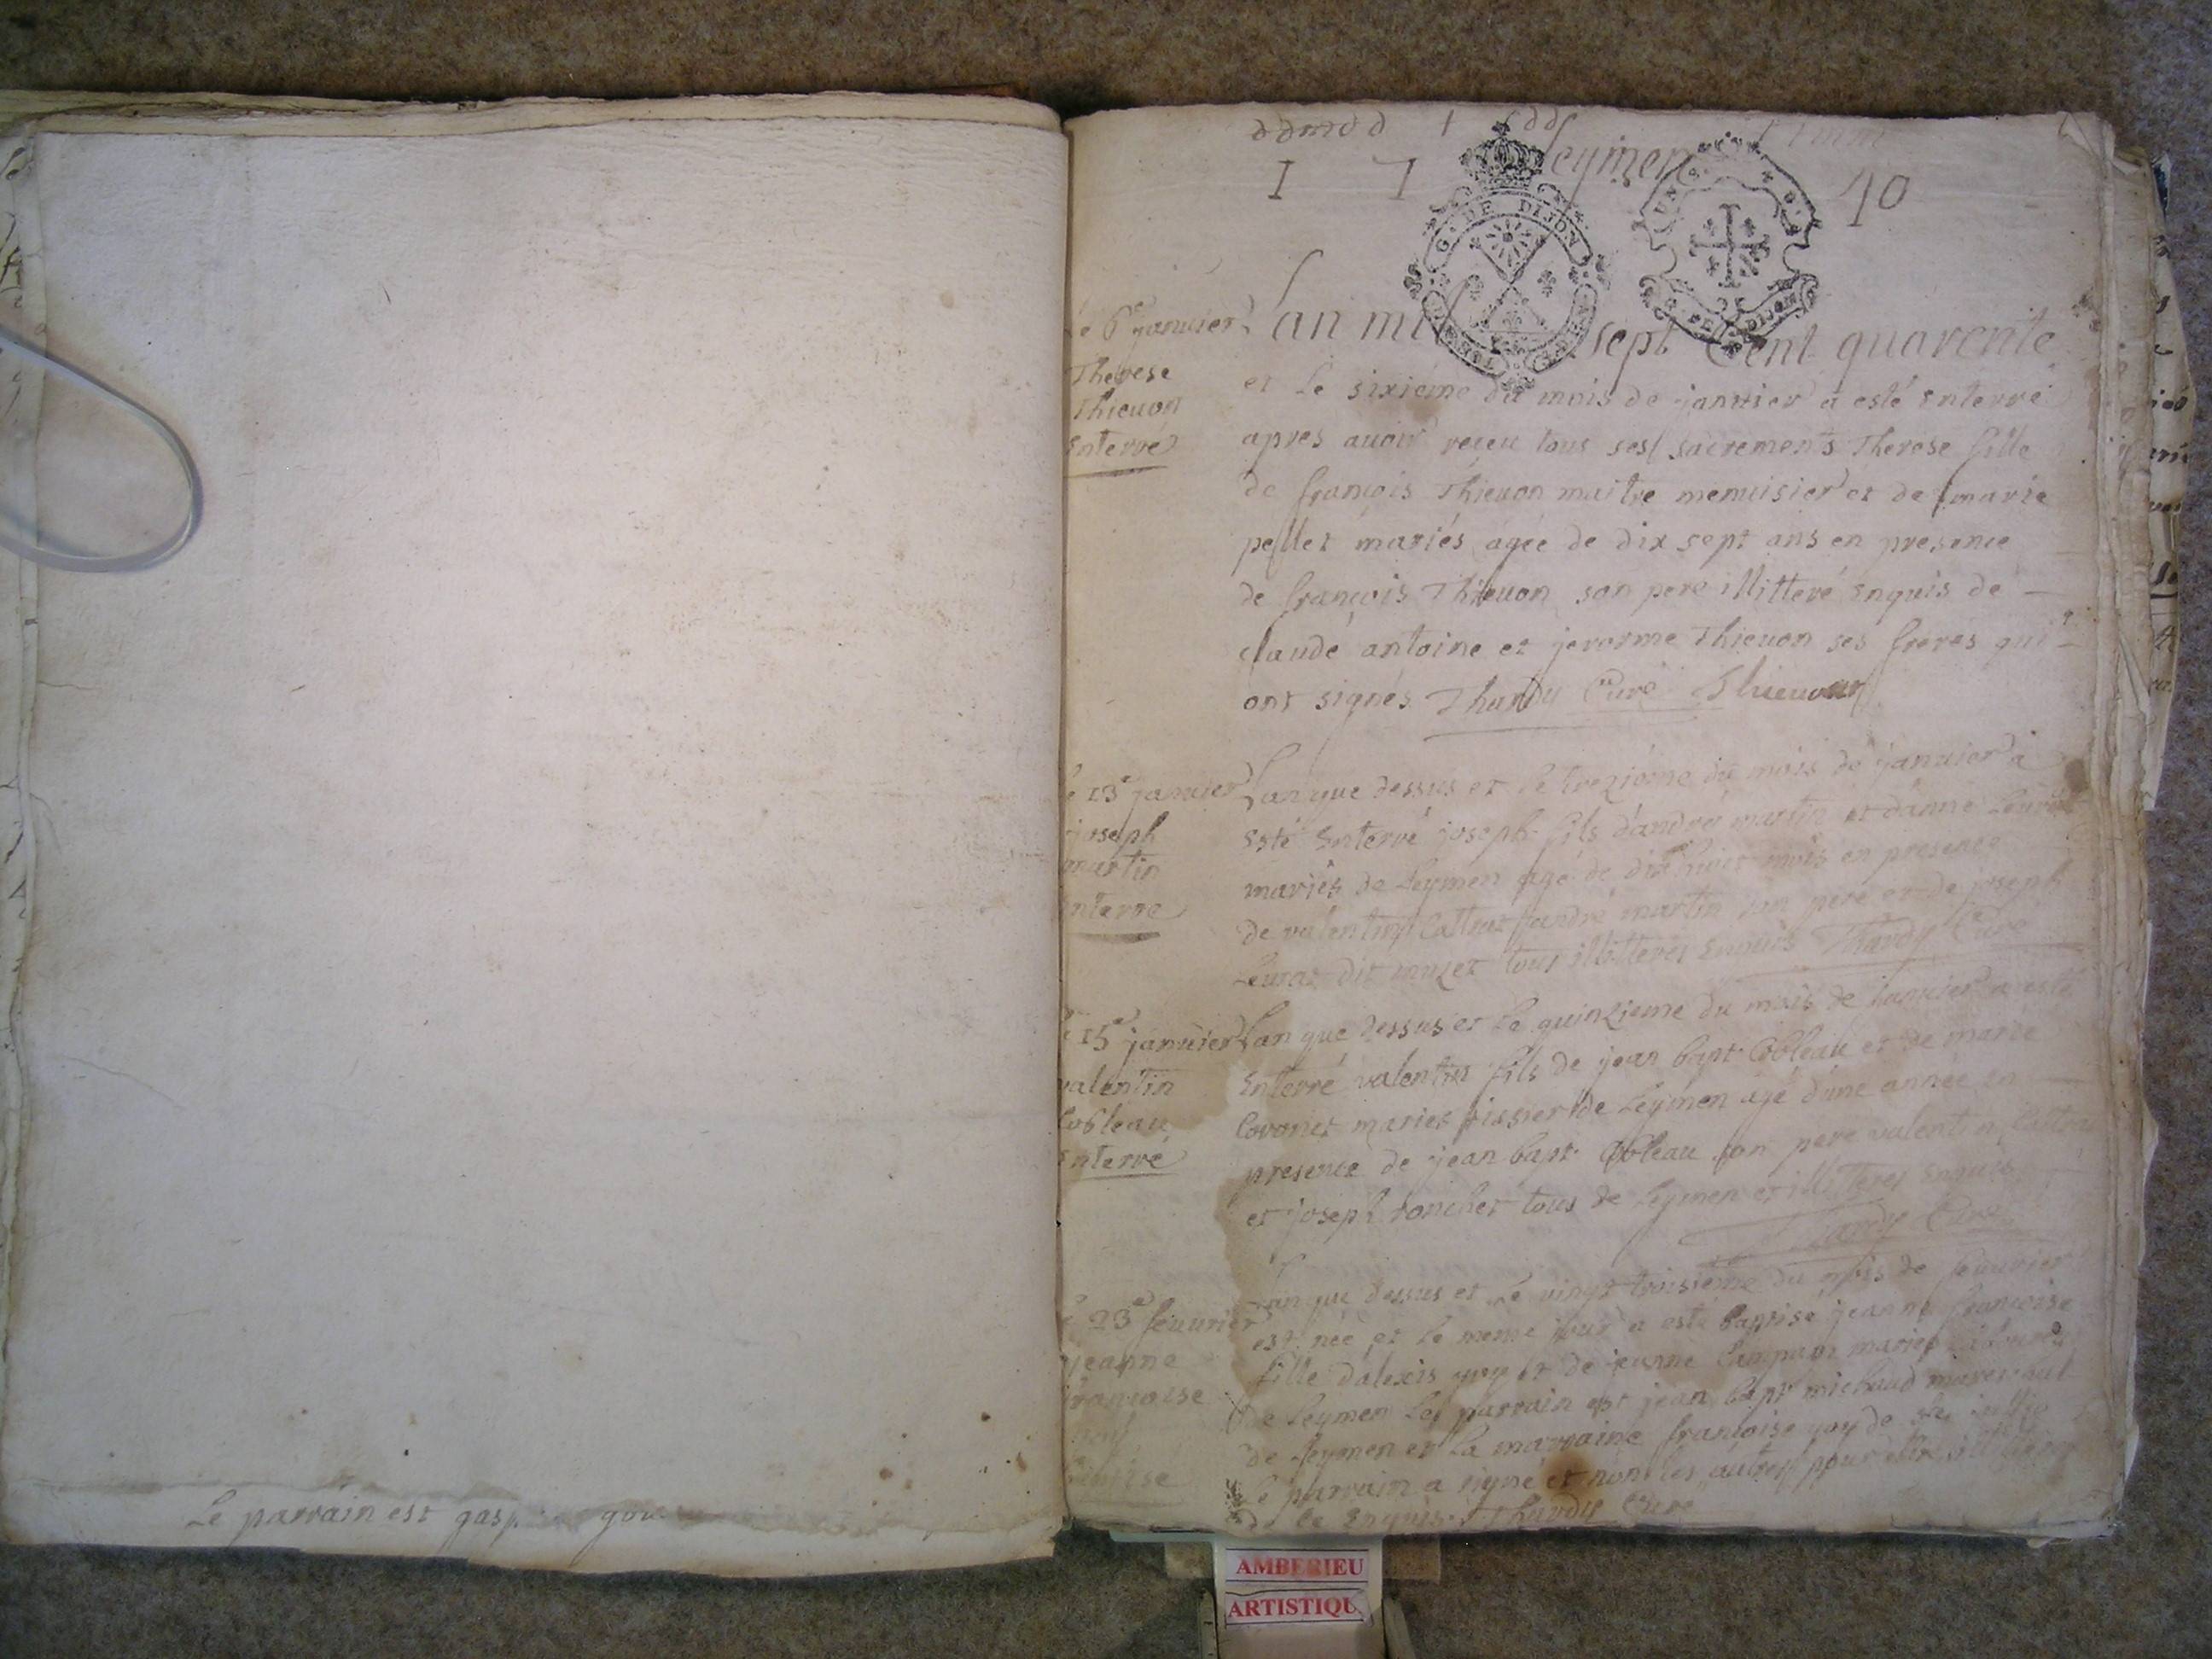 Le parrain est gasp
Leymen
1 7 40
G. DE DIJON
Le 6e janvier
Therese
Thieuon
Enterré
L'an mil sept Cent quarente
et le sixiéme du mois de januier a esté Enterré
apres auoir reçeu tous ses sacrements Therese fille
de françois Thieuon maitre menuisier et de marie
pellet mariés agée de dix sept ans en presence
de françois Thieuon son pere illitteré Enquis de
claude antoine et jerorme Thieuon ses freres qui
ont signés Thardy Curé Thieuon
le 13e januier
joseph
martin
Enterre
L'an que dessus et le treziéme du mois de januier a
Esté Enterré joseph fils d'andré martin et d'anne
mariés de Leymen agé de dix huit mois en presence
de valentin Cattras d'andré martin son pere et de joseph
Leuras dit muzet tous illitteres Enquis Thardy Curé
le 15e januier
valentin
Cobleau
Enterré
L'an que dessus et le quinzieme du mois de januier a esté
Enterré valentin fils de jean bapt. Cobleau et de marie
Coronet mariés tissier de Leymen agé d'une année en
presence de jean bapt. Cobleau son pere valentin
et joseph ronchet tous de Leymen et illitteres Enquis
Thardy Curé
le 23e feuurier
jeanne
françoise
L'an que dessus et Le vingt troisiéme du mois de feuurier
est née et le meme jour a esté baptisé jeanne françoise
fille d'alexis guy et de jeanne mariés
de Leymen Le parrain est jean bapt michaud mareschal
de Leymen et La marraine françoise guy de
Le parrain a signé et non les autres pour estre illitteres
de ce Enquis Thardy Curé
AMBERIEU
ARTISTIQU